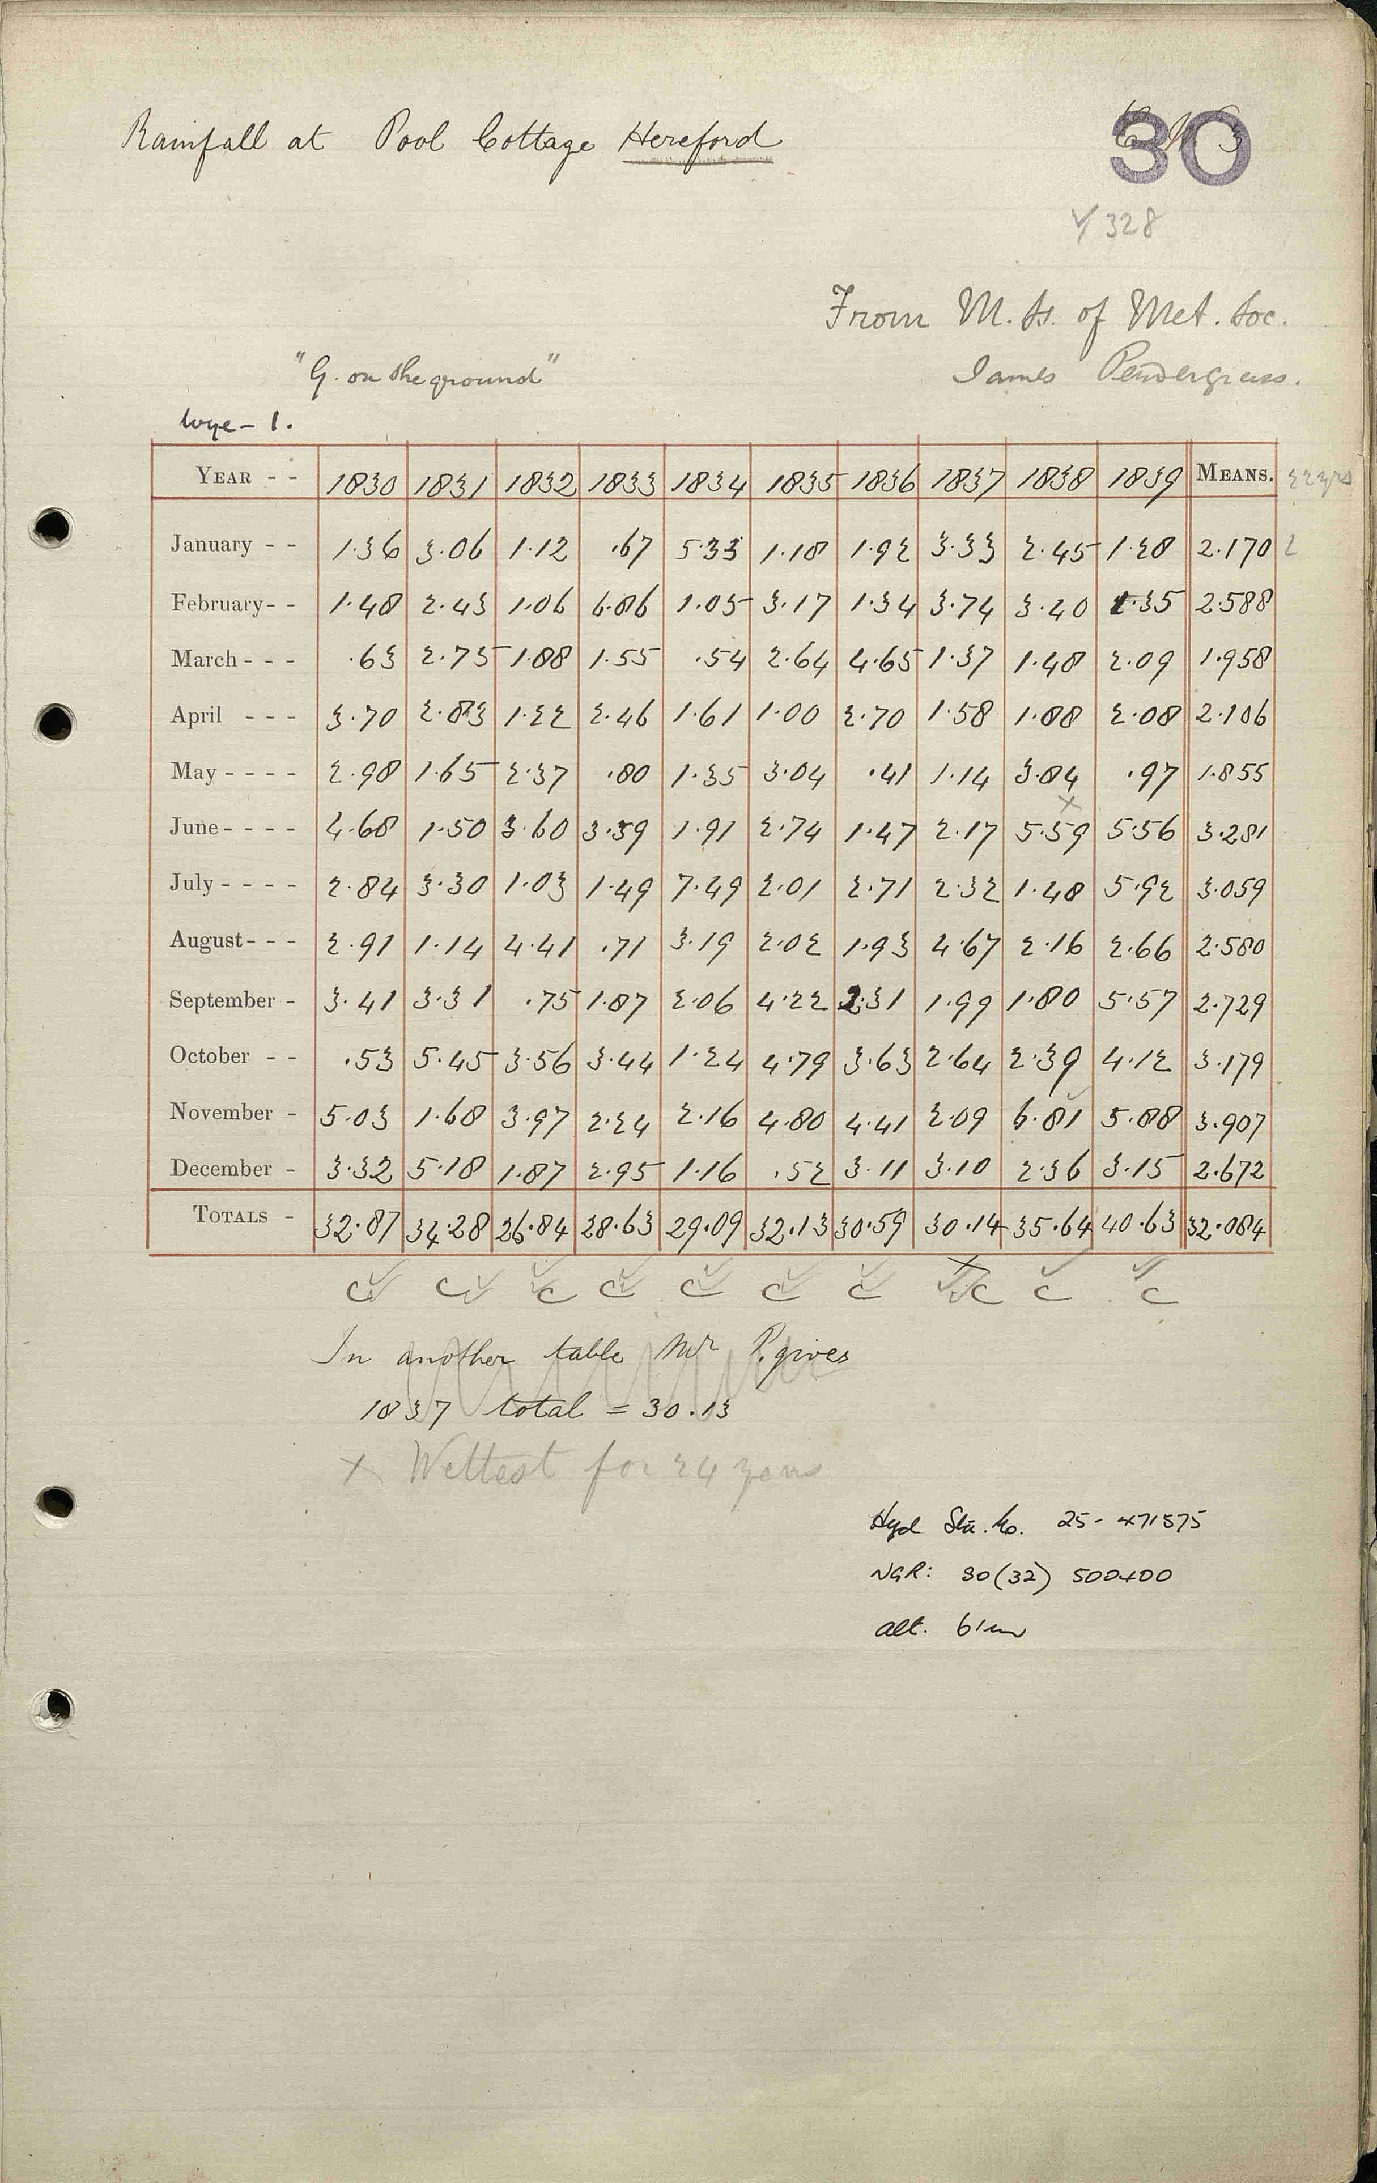 Rainfall at Pool Cottage Hereford
30
√ 328
From M.Ss. of Met. Soc.
James Pendergrass.
"G. on the ground"
Wye - 1.
YEAR - - 1830 1831 1832 1833 1834 1835 1836 1837 1838 1839 MEANS. 22 yrs
January - - 1.36 3.06 1.12 .67 5.33 1.18 1.92 3.33 2.45 1.28 2.170 2
February - - 1.48 2.43 1.06 6.86 1.05 3.17 1.34 3.74 3.40 1.35 2.588
March - - - .63 2.75 1.88 1.55 .54 2.64 4.65 1.37 1.48 2.09 1.958
April - - - 3.70 2.83 1.22 2.46 1.61 1.00 2.70 1.58 1.88 2.08 2.106
May - - - - 2.98 1.65 2.37 .80 1.35 3.04 .41 1.14 3.84 .97 1.855
June - - - - 4.68 1.50 3.60 3.59 1.91 2.74 1.47 2.17 5.59 x 5.56 3.281
July - - - - 2.84 3.30 1.03 1.49 7.49 2.01 2.71 2.32 1.48 5.92 3.059
August - - - 2.91 1.14 4.41 .71 3.19 2.02 1.93 4.67 2.16 2.66 2.580
September - 3.41 3.31 .75 1.87 2.06 4.22 2.31 1.99 1.80 5.57 2.729
October - - .53 5.45 3.56 3.44 1.24 4.79 3.63 2.64 2.39 4.12 3.179
November - 5.03 1.68 3.97 2.24 2.16 4.80 4.41 2.09 6.81 5.88 3.907
December - 3.32 5.18 1.87 2.95 1.16 .52 3.11 3.10 2.36 3.15 2.672
TOTALS - 32.87 34.28 26.84 28.63 29.09 32.13 30.59 30.14 35.64 40.63 32.084
C C C C C C C x C C C
In another table Mr P. gives
1837 total = 30.13
x Wettest for 24 years
Hyd Sta. No. 25-471575
NGR: 30(32) 500400
alt. 61m